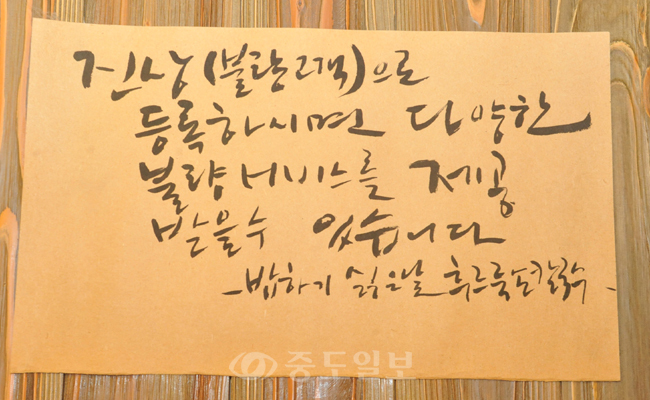 진상(불량고객)으로
등록하시면 다양한
불량서비스를 제공
받을수 있습니다
-밥하기 싫은날 후루룩손칼국수-
중도일보